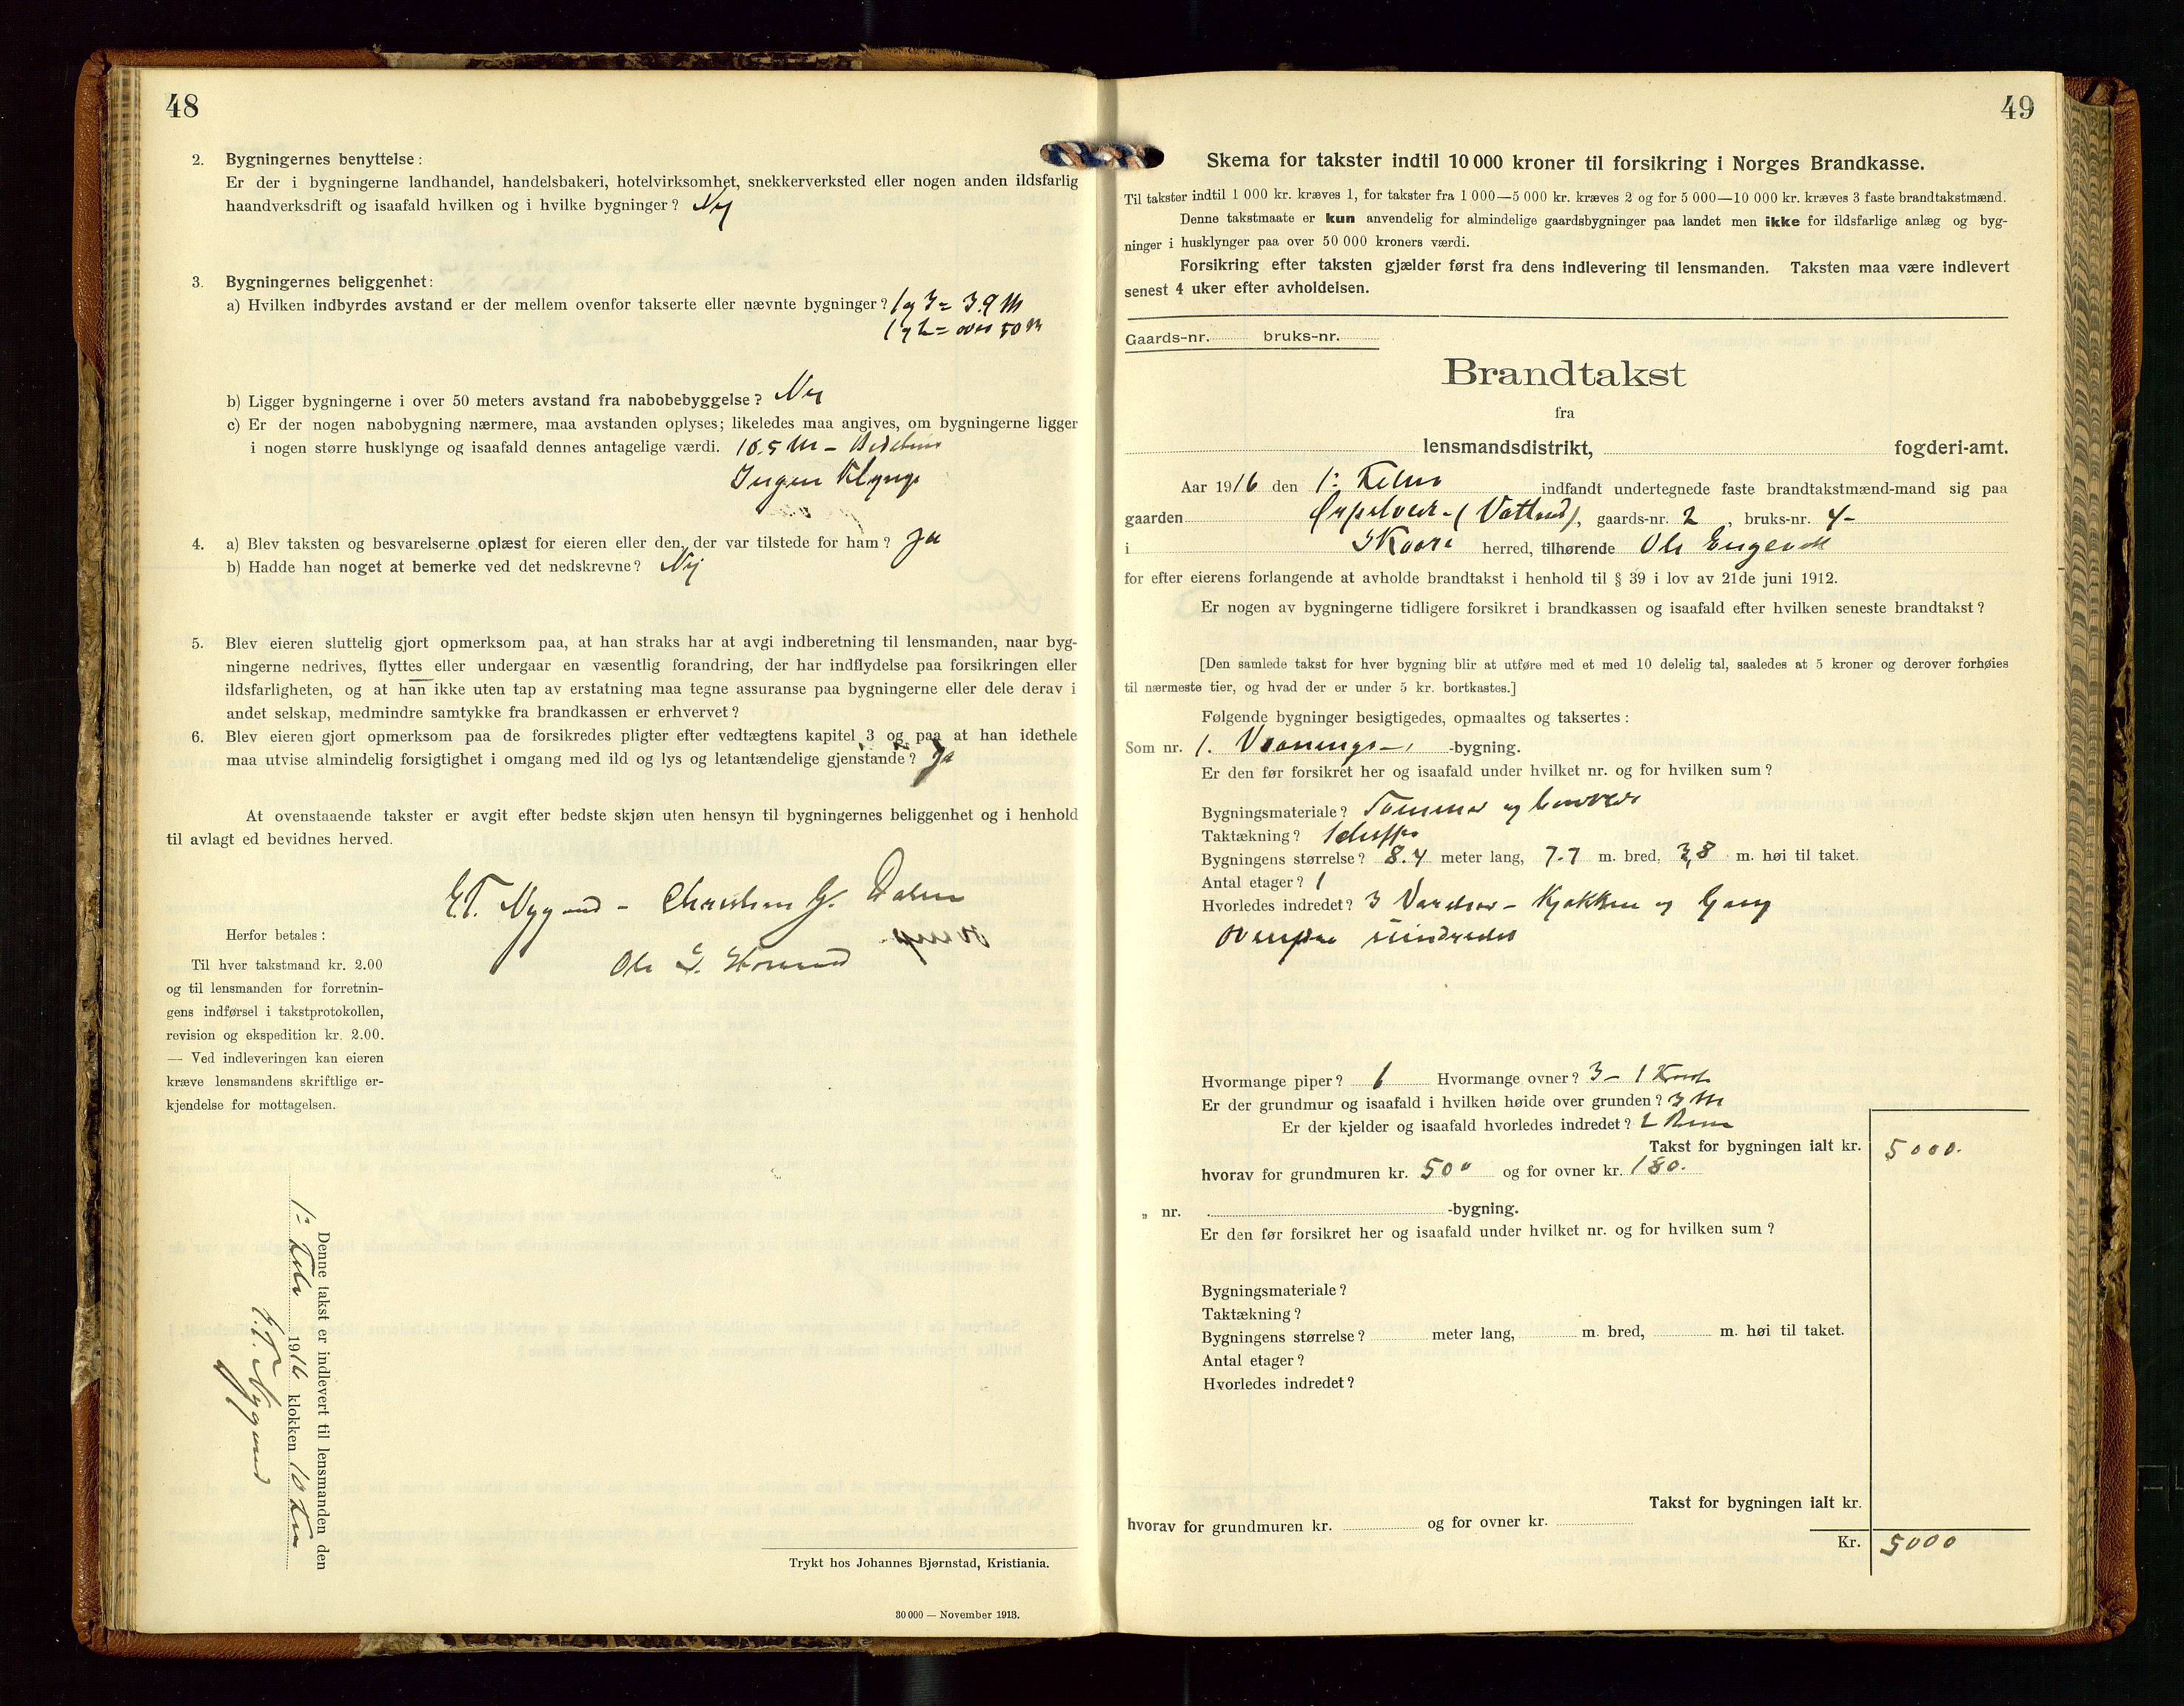 48
2. Bygningernes benyttelse:
Er der i bygningerne landhandel, handelsbakeri, hotelvirksomhet, snekkerverksted eller nogen anden ildsfarlig
haandverksdrift og isaafald hvilken og i hvilke bygninger? Nej
3. Bygningernes beliggenhet:
a) Hvilken indbyrdes avstand er der mellem ovenfor takserte eller nævnte bygninger? 1 og 3 = 3.9 M
1 og 2 = over 50 M
b) Ligger bygningerne i over 50 meters avstand fra nabobebyggelse? Nej
c) Er der nogen nabobygning nærmere, maa avstanden oplyses; likeledes maa angives, om bygningerne ligger
i nogen større husklynge og isaafald dennes antagelige værdi. 16.5 M -
Ingen Klynge
4. a) Blev taksten og besvarelserne oplæst for eieren eller den, der var tilstede for ham? Ja
b) Hadde han noget at bemerke ved det nedskrevne? Nej
5. Blev eieren sluttelig gjort opmerksom paa, at han straks har at avgi indberetning til lensmanden, naar byg-
ningerne nedrives, flyttes eller undergaar en væsentlig forandring, der har indflydelse paa forsikringen eller
ildsfarligheten, og at han ikke uten tap av erstatning maa tegne assuranse paa bygningerne eller dele derav i
andet selskap, medmindre samtykke fra brandkassen er erhvervet?
6. Blev eieren gjort opmerksom paa de forsikredes pligter efter vedtægtens kapitel 3 og paa at han idethele
maa utvise almindelig forsigtighet i omgang med ild og lys og letantændelige gjenstande? Ja
At ovenstaaende takster er avgit efter bedste skjøn uten hensyn til bygningernes beliggenhet og i henhold
til avlagt ed bevidnes herved.
E.T. Nygaard - Christian G. Dalen
Ole
Herfor betales:
Til hver takstmand kr. 2.00
og til lensmanden for forretnin-
gens indførsel i takstprotokollen,
revision og ekspedition kr. 2.00.
— Ved indleveringen kan eieren
kræve lensmandens skriftlige er-
kjendelse for mottagelsen.
Denne takst er indlevert til lensmanden den
1: Febr 1916 klokken 10
E.T. Nygaard
Trykt hos Johannes Bjørnstad, Kristiania.
30 000 — November 1913.
49
Skema for takster indtil 10 000 kroner til forsikring i Norges Brandkasse.
Til takster indtil 1 000 kr. kræves 1, for takster fra 1 000—5 000 kr. kræves 2 og for 5 000—10 000 kr. kræves 3 faste brandtakstmænd.
Denne takstmaate er kun anvendelig for almindelige gaardsbygninger paa landet men ikke for ildsfarlige anlæg og byg-
ninger i husklynger paa over 50 000 kroners værdi.
Forsikring efter taksten gjælder først fra dens indlevering til lensmanden. Taksten maa være indlevert
senest 4 uker efter avholdelsen.
Gaards-nr. bruks-nr.
Brandtakst
fra
lensmandsdistrikt, fogderi-amt.
Aar 1916 den 1: Februar indfandt undertegnede faste brandtakstmænd-mand sig paa
gaarden (Vatland), gaards-nr. 2, bruks-nr. 4-
i Skaare herred, tilhørende Ole
for efter eierens forlangende at avholde brandtakst i henhold til § 39 i lov av 21de juni 1912.
Er nogen av bygningerne tidligere forsikret i brandkassen og isaafald efter hvilken seneste brandtakst?
[Den samlede takst for hver bygning blir at utføre med et med 10 delelig tal, saaledes at 5 kroner og derover forhøies
til nærmeste tier, og hvad der er under 5 kr. bortkastes.]
Følgende bygninger besigtigedes, opmaaltes og taksertes:
Som nr. 1. Vaanings- -bygning.
Er den før forsikret her og isaafald under hvilket nr. og for hvilken sum?
Bygningsmateriale? Tømmer og
Taktækning?
Bygningens størrelse? 8.4 meter lang, 7.7 m. bred, 3,8 m. høi til taket.
Antal etager? 1
Hvorledes indredet? 3 Værelser - Kjøkken og Gang
ovenpaa uindredet
Hvormange piper? 1 Hvormange ovner? 3 - 1 Komf
Er der grundmur og isaafald i hvilken høide over grunden? 3 M
Er der kjelder og isaafald hvorledes indredet? 2 Rum
Takst for bygningen ialt kr. 5000.
hvorav for grundmuren kr. 500 og for ovner kr. 180.
„ nr. -bygning.
Er den før forsikret her og isaafald under hvilket nr. og for hvilken sum?
Bygningsmateriale?
Taktækning?
Bygningens størrelse? meter lang, m. bred, m. høi til taket.
Antal etager?
Hvorledes indredet?
Takst for bygningen ialt kr.
hvorav for grundmuren kr. og for ovner kr.
Kr. 5000